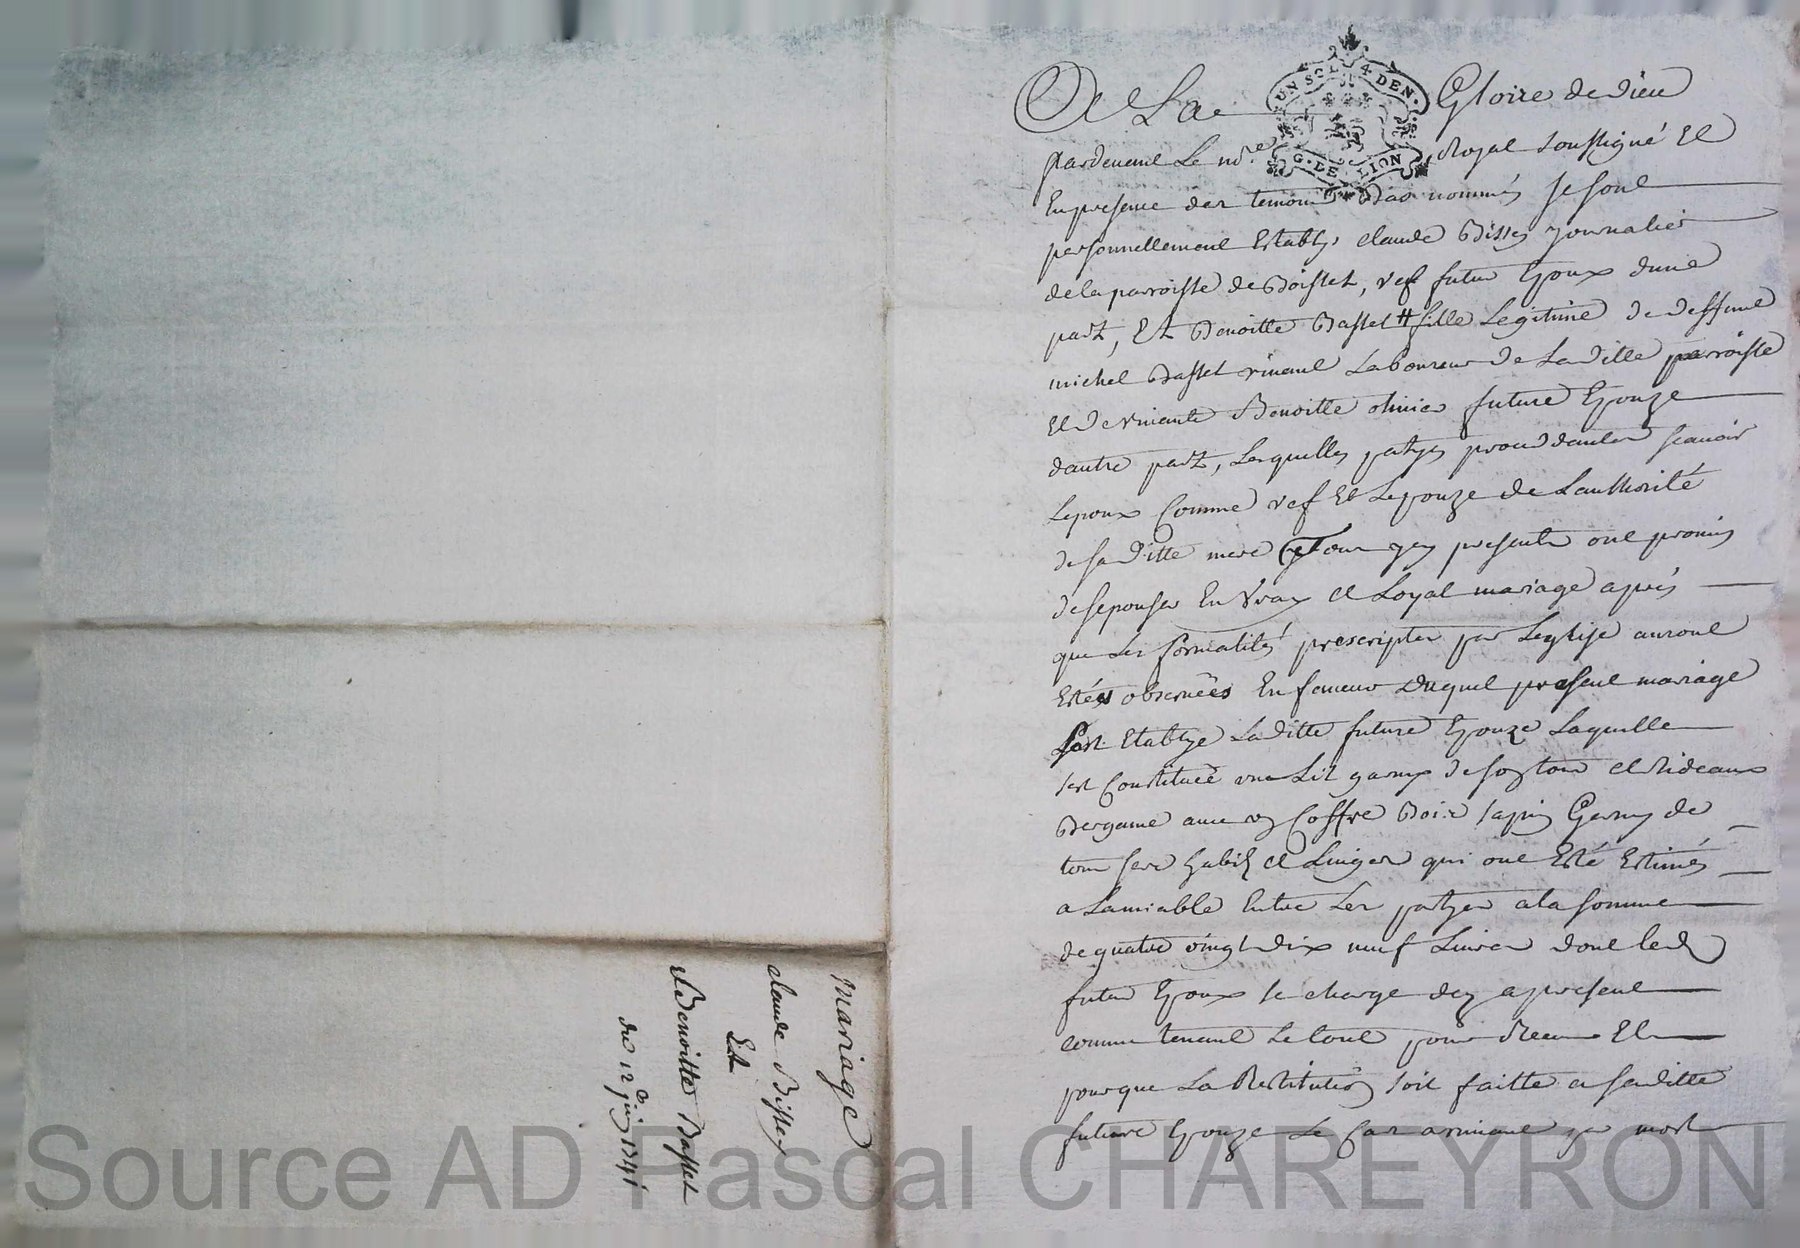 A La Gloire de dieu
UN SOL 4 DEN.
G. DE LION
pardevant Le no.re Royal soussigné Et
En presence des temoins bas nommés se sont
personnellement Establys claude Bissey journalier
de la parroisse de Boisset, vef futur Epoux dune
part, Et Benoitte Basset # fille Legitime de deffunt
michel Basset vivant Laboureur de Laditte parroisse
Et de vivante Benoitte olivier future Epouze
dautre part, Lesquelles partyes procedantes scavoir
Lepoux Comme vef Et Lepouze de Lauthorité
de sa ditte mere Cy presente ont promis
de sepouser En vray et Loyal mariage après
que Les formalités prescriptes par Leglise auront
Estées observées En faveur duquel present mariage
sest Etablye Laditte future Epouze Laquelle
sest Constituée un Lit garny de son tour et Rideaux
Bergame avec un Coffre Bois sapin Garny de
tous ses habits et Linges qui ont Esté Estimés
a Lamiable Entre Les partyes a la somme
de quatre vingt dix neuf Livres dont led.
futur Epoux se charge dez apresent
comme tenant Le tout pour Receu Et
pour que La Restitution soit faitte a saditte
future Epouze Le Cas arrivant de mort
Mariage
claude Bissey
Et
et Benoitte Basset
du 12e juin 1741
Source AD Pascal CHAREYRON